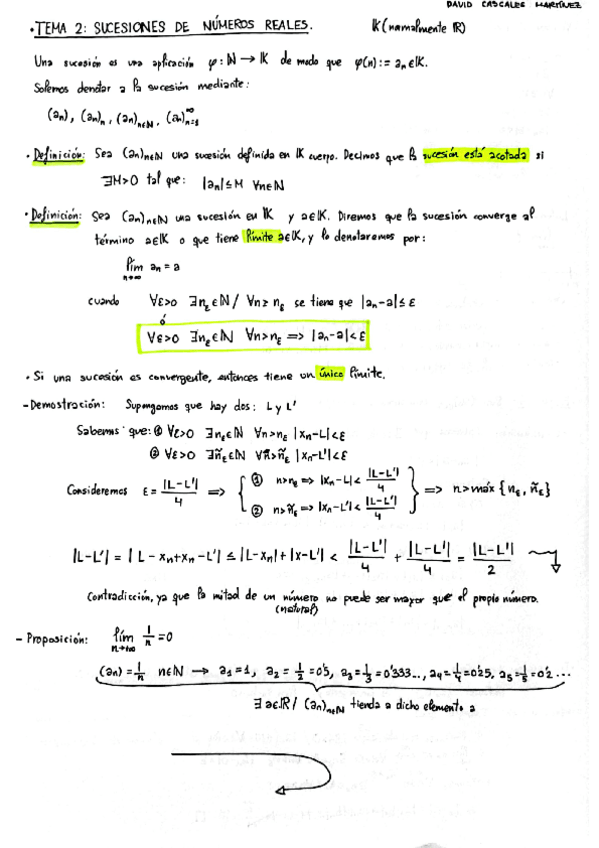 DAVID CASCALES MARTÍNEZ
· TEMA 2: SUCESIONES DE NÚMEROS REALES. 𝕂 (normalmente ℝ)
Una sucesión es una aplicación φ: ℕ → 𝕂 de modo que φ(n) := an ∈ 𝕂.
Solemos denotar a la sucesión mediante:
(an), (an)n, (an)n∈ℕ, (an)∞n=1
· Definición: Sea (an)n∈ℕ una sucesión definida en 𝕂 cuerpo. Decimos que la sucesión está acotada si
∃M>0 tal que: |an| ≤ M ∀n∈ℕ
· Definición: Sea (an)n∈ℕ una sucesión en 𝕂 y a∈𝕂. Diremos que la sucesión converge al
término a∈𝕂 o que tiene límite a∈𝕂, y lo denotaremos por:
lím n→∞ an = a
cuando ∀ε>0 ∃nε∈ℕ / ∀n≥nε se tiene que |an-a| ≤ ε
ó
∀ε>0 ∃nε∈ℕ ∀n>nε ⟹ |an-a| < ε
· Si una sucesión es convergente, entonces tiene un único límite.
- Demostración: Supongamos que hay dos: L y L'
Sabemos que: ① ∀ε>0 ∃nε∈ℕ ∀n>nε |xn-L|<ε
② ∀ε>0 ∃ñε∈ℕ ∀ñ>ñε |xn-L'|<ε
Consideremos ε = |L-L'|/4 ⟹ { ① n>nε ⟹ |xn-L| < |L-L'|/4
② n>ñε ⟹ |xn-L'| < |L-L'|/4 } ⟹ n > máx {nε, ñε}
|L-L'| = |L-xn+xn-L'| ≤ |L-xn|+|x-L'| < |L-L'|/4 + |L-L'|/4 = |L-L'|/2
Contradicción, ya que la mitad de un número no puede ser mayor que el propio número.
(natural)
- Proposición: lím n→+∞ 1/n = 0
(an) = 1/n n∈ℕ → a1 = 1, a2 = 1/2 = 0'5, a3 = 1/3 = 0'333..., a4 = 1/4 = 0'25, a5 = 1/5 = 0'2 ...
∃ a∈ℝ / (an)n∈ℕ tienda a dicho elemento a